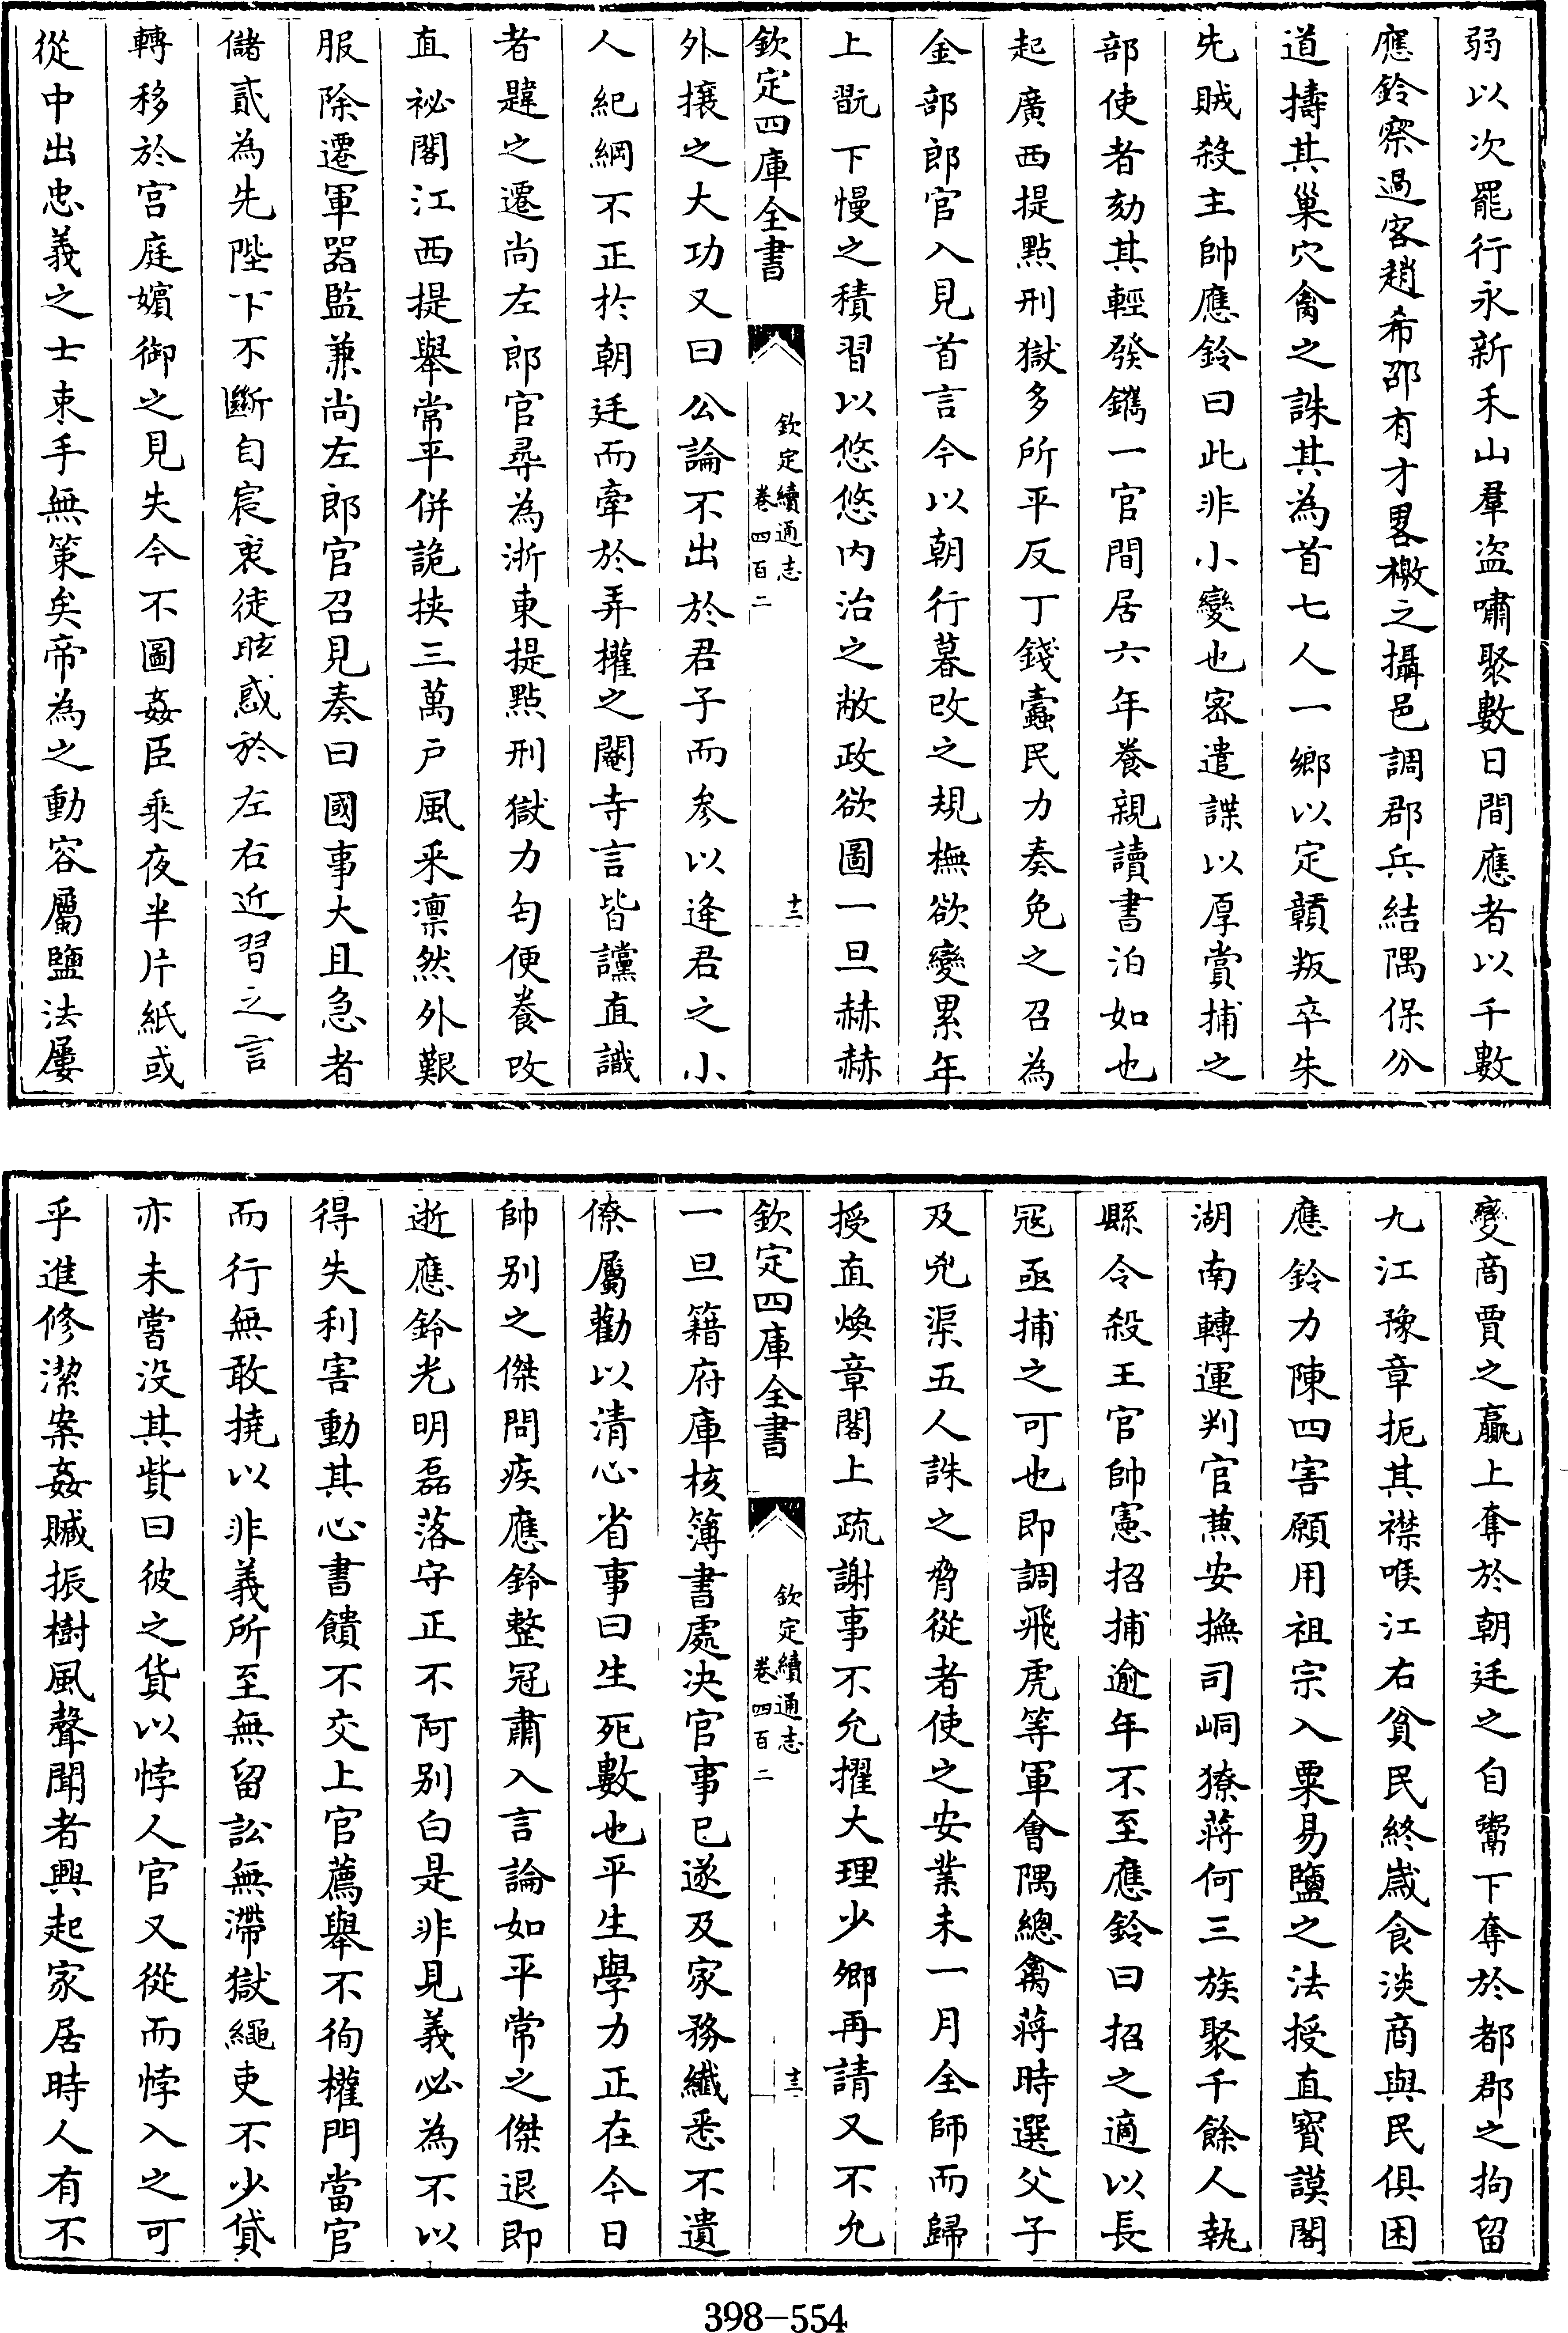 弱以次罷行永新禾山羣盜嘯聚數日間應者以千數
應鈴察過客趙希邵有才畧檄之攝邑調郡兵結隅保分
道擣其巢穴禽之誅其為首七人一鄉以定贛叛卒朱
先賊殺主帥應鈴曰此非小變也密遣諜以厚賞捕之
部使者劾其輕發鐫一官間居六年養親讀書泊如也
起廣西提點刑獄多所平反丁錢蠹民力奏免之召為
金部郎官入見首言今以朝行暮改之規橅欲變累年
上翫下慢之積習以悠悠內治之敝政欲圖一旦赫赫
欽定四庫全書
欽定續通志
卷四百二
十三
外攘之大功又曰公論不出於君子而參以逢君之小
人紀綱不正於朝廷而牽於弄權之閹寺言皆讜直識
者韙之遷尚左郎官尋為浙東提點刑獄力匄便養改
直祕閣江西提舉常平併詭挾三萬戶風采凜然外艱
服除遷軍器監兼尚左郎官召見奏曰國事大且急者
儲貳為先陛下不斷自宸衷徒眩惑於左右近習之言
轉移於宮庭嬪御之見失今不圖姦臣乘夜半片紙或
從中出忠義之士束手無策矣帝為之動容屬鹽法屢
變商賈之贏上奪於朝廷之自鬻下奪於都郡之拘留
九江豫章扼其襟喉江右貧民終歲食淡商與民俱困
應鈴力陳四害願用祖宗入粟易鹽之法授直寶謨閣
湖南轉運判官兼安撫司峒獠蔣何三族聚千餘人執
縣令殺王官帥憲招捕逾年不至應鈴曰招之適以長
寇亟捕之可也即調飛虎等軍會隅總禽蔣時選父子
及兇渠五人誅之脅從者使之安業未一月全師而歸
授直煥章閣上疏謝事不允擢大理少卿再請又不允
欽定四庫全書
欽定續通志
卷四百二
十三
一旦籍府庫核簿書處决官事已遂及家務纖悉不遺
僚屬勸以清心省事曰生死數也平生學力正在今日
帥別之傑問疾應鈴整冠肅入言論如平常之傑退即
逝應鈴光明磊落守正不阿別白是非見義必為不以
得失利害動其心書饋不交上官薦舉不徇權門當官
而行無敢撓以非義所至無留訟無滯獄繩吏不少貸
亦未嘗没其貲曰彼之貨以悖人官又從而悖入之可
乎進修潔案姦贓振樹風聲聞者興起家居時人有不
398-554